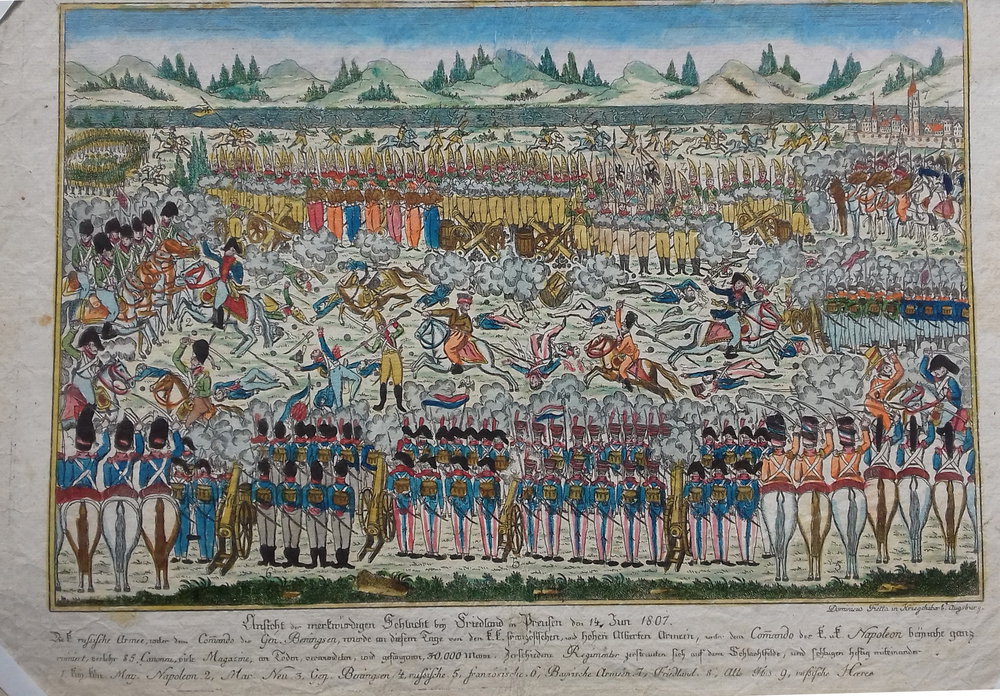 Dominicus Fietta in Kriegshaber b. Augsburg.
Ansicht der merkwürdigen Schlacht bey Friedland in Preusen den 14. Jun 1807.
Die k. russische Armee, unter dem Comando des Gen. Beningsen, wurde an diesem Tage von den k.k. französischen, und hohen Alierten Armeen, unter dem Comando des k. k. Napoleon beynahe ganz
ruiniert, verlohr 85 Canonen, viele Magazine, an Toden, verwundeten, und gefangenen, 30,000 Mann. Zerschiedene Regimenter zerstreuten sich auf dem Schlachtfelde, und schlugen heftig miteinander
1. May. Napoleon 2, Mar. Neu 3, Gen. Beningsen 4, russische 5, französische 6, Bayrische Armeen 7, Friedland. 8, Alle Fluß 9, russische Heere